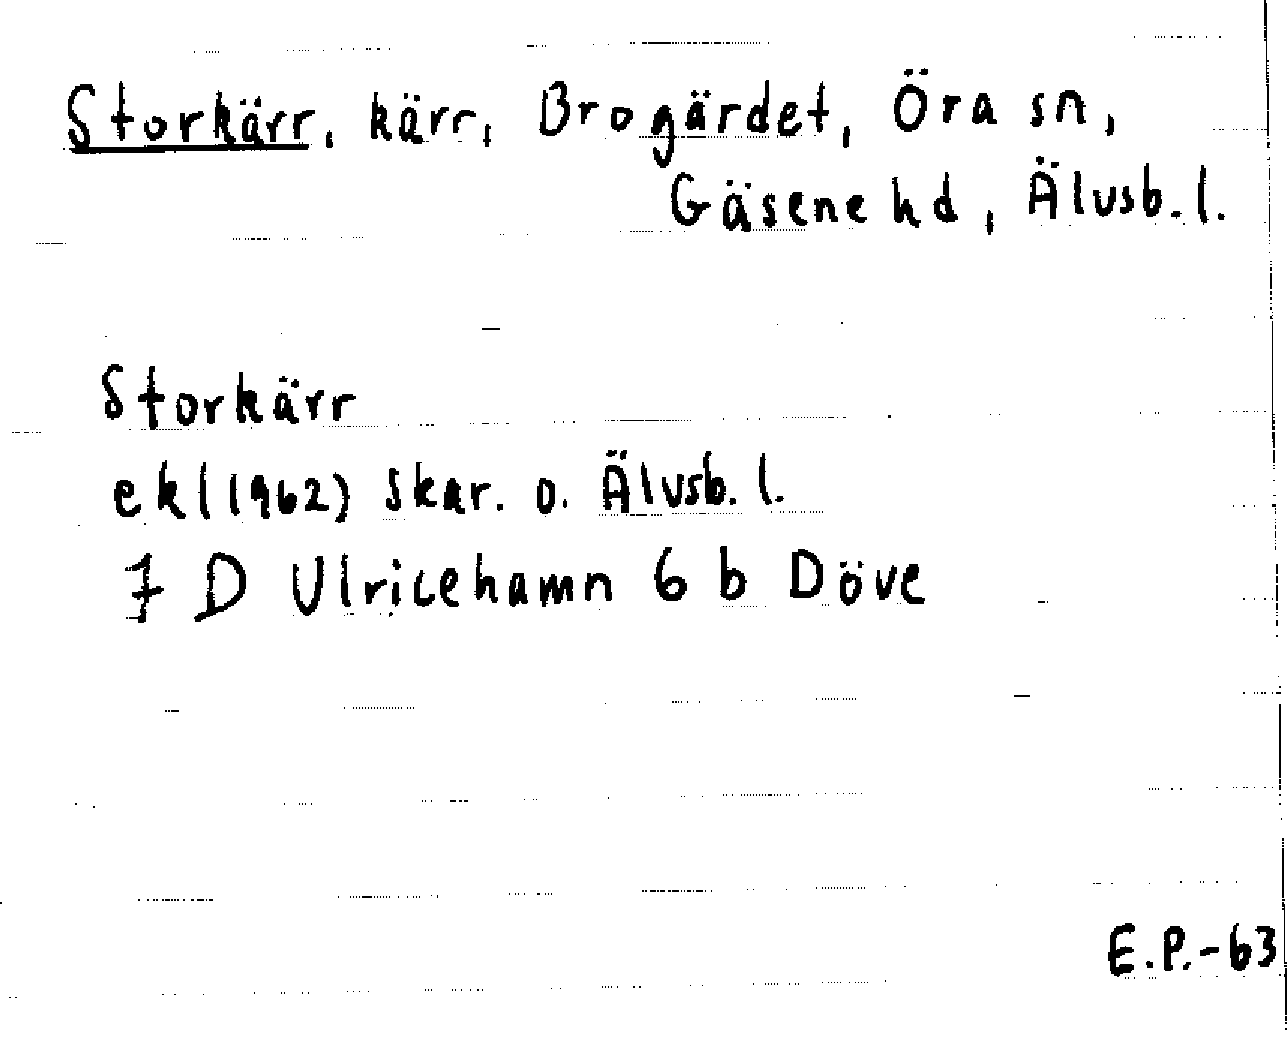 Storkärr, kärr, Brogärdet, Öra sn,
Gäsene hd, Älvsb. l.
Storkärr
ekl (1962) Skar. o. Älvsb. l.
7 D Ulricehamn 6 b Döve
E.P.-63